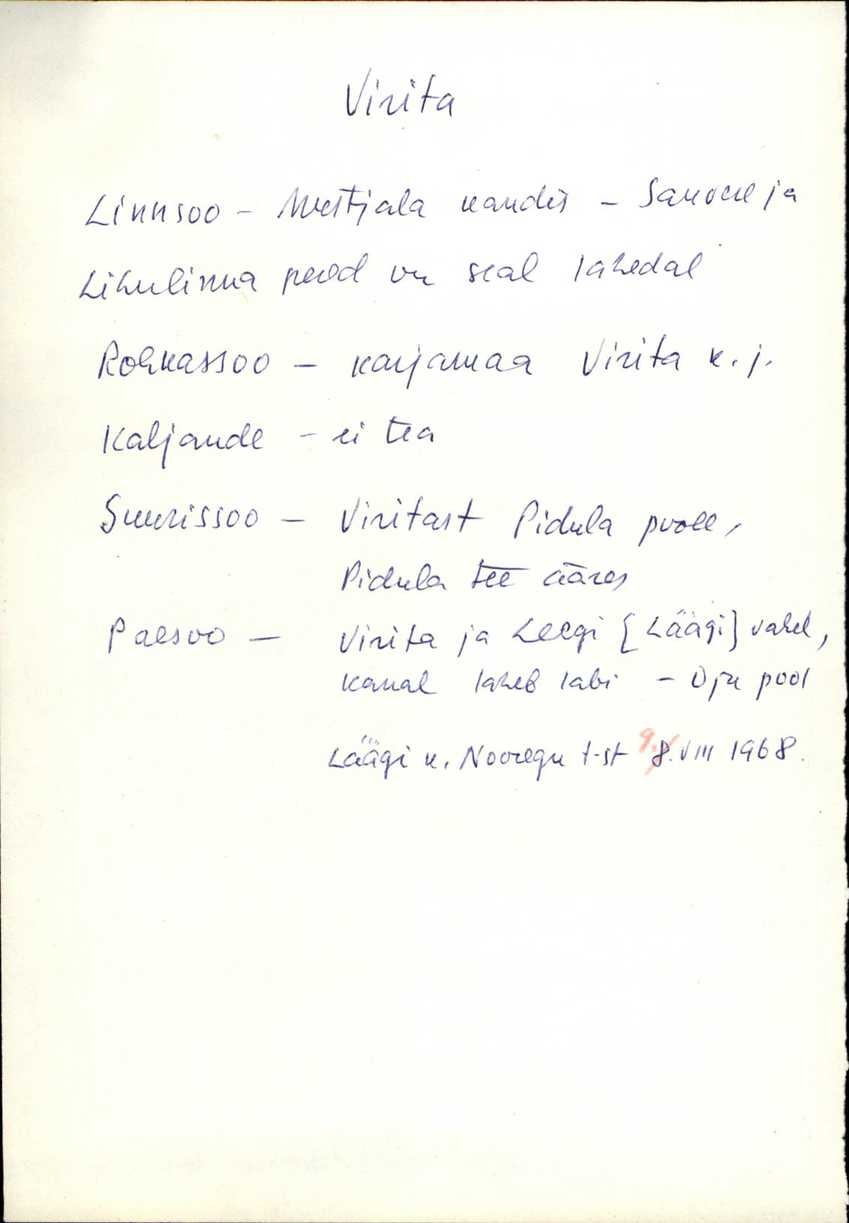 Virita
Linnsoo – Mustjala kandis – ja
Lihulinna peed on seal lahedal
Rohkassoo – karjamaa Virita k. j.
Kaljande – ei tea
Suurissoo – Viritast Pidula pool,
Pidula tee ääres
Paesoo – Virita ja Leegi [Läägi] vahel,
kanal laheb labi – Oju pool
Läägi k. Nooregu t-st 9. 8. VIII 1968.